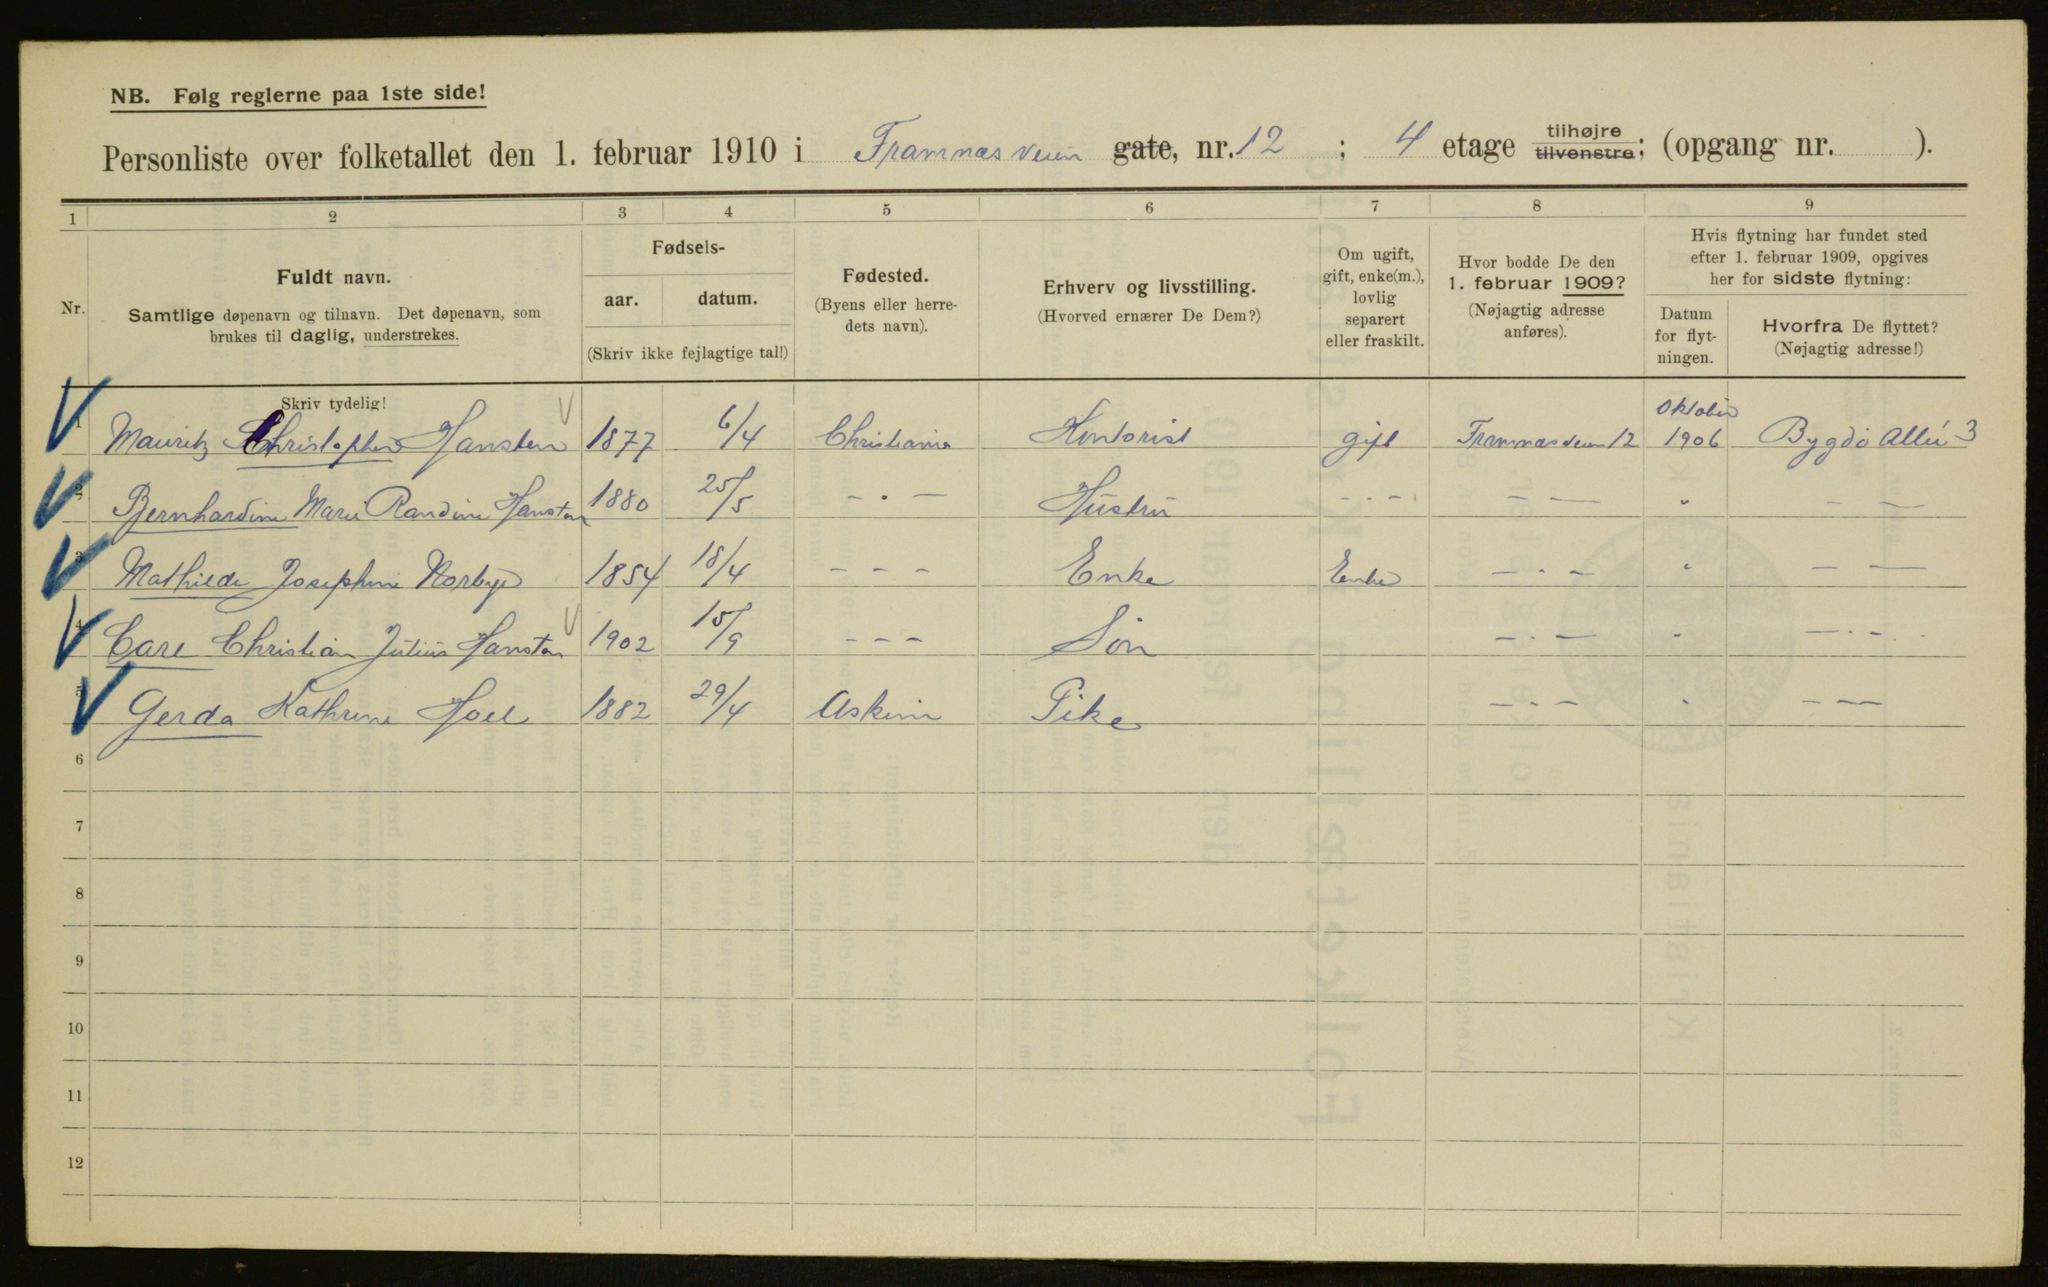 NB. Følg reglerne paa 1ste side!
Personliste over folketallet den 1. februar 1910 i Framnæsveien gate, nr. 12 ; 4 etage tilhøjre tilvenstre; (opgang nr. ).
1 2 3 4 5 6 7 8 9
Nr.
Fuldt navn.
Samtlige døpenavn og tilnavn. Det døpenavn, som
brukes til daglig, understrekes.
Skriv tydelig!
Fødsels-
aar. datum.
(Skriv ikke fejlagtige tal!)
Fødested.
(Byens eller herre-
dets navn).
Erhverv og livsstilling.
(Hvorved ernærer De Dem?)
Om ugift,
gift, enke(m.),
lovlig
separert
eller fraskilt.
Hvor bodde De den
1. februar 1909?
(Nøjagtig adresse
anføres).
Hvis flytning har fundet sted
efter 1. februar 1909, opgives
her for sidste flytning:
Datum
for flyt-
ningen.
Hvorfra De flyttet?
(Nøjagtig adresse!)
1 Mauritz Christopher Hansten 1877 6/4 Christiania Kontorist gift Framnæsveien 12 Oktober 1906 Bygdø Allé 3
2 Bernhardine Marie Randine Hansten 1880 25/5 - . - Hustru - . - - — " — —
3 Mathilde Josephine Norbye 1854 18/4 - - - Enke Enke - . - " — —
4 Carl Christian Julius Hansten 1902 15/9 - - - Søn - . - " - . -
5 Gerda Kathrine Hoel 1882 29/4 Askim Pike - . - " - - -
6
7
8
9
10
11
12